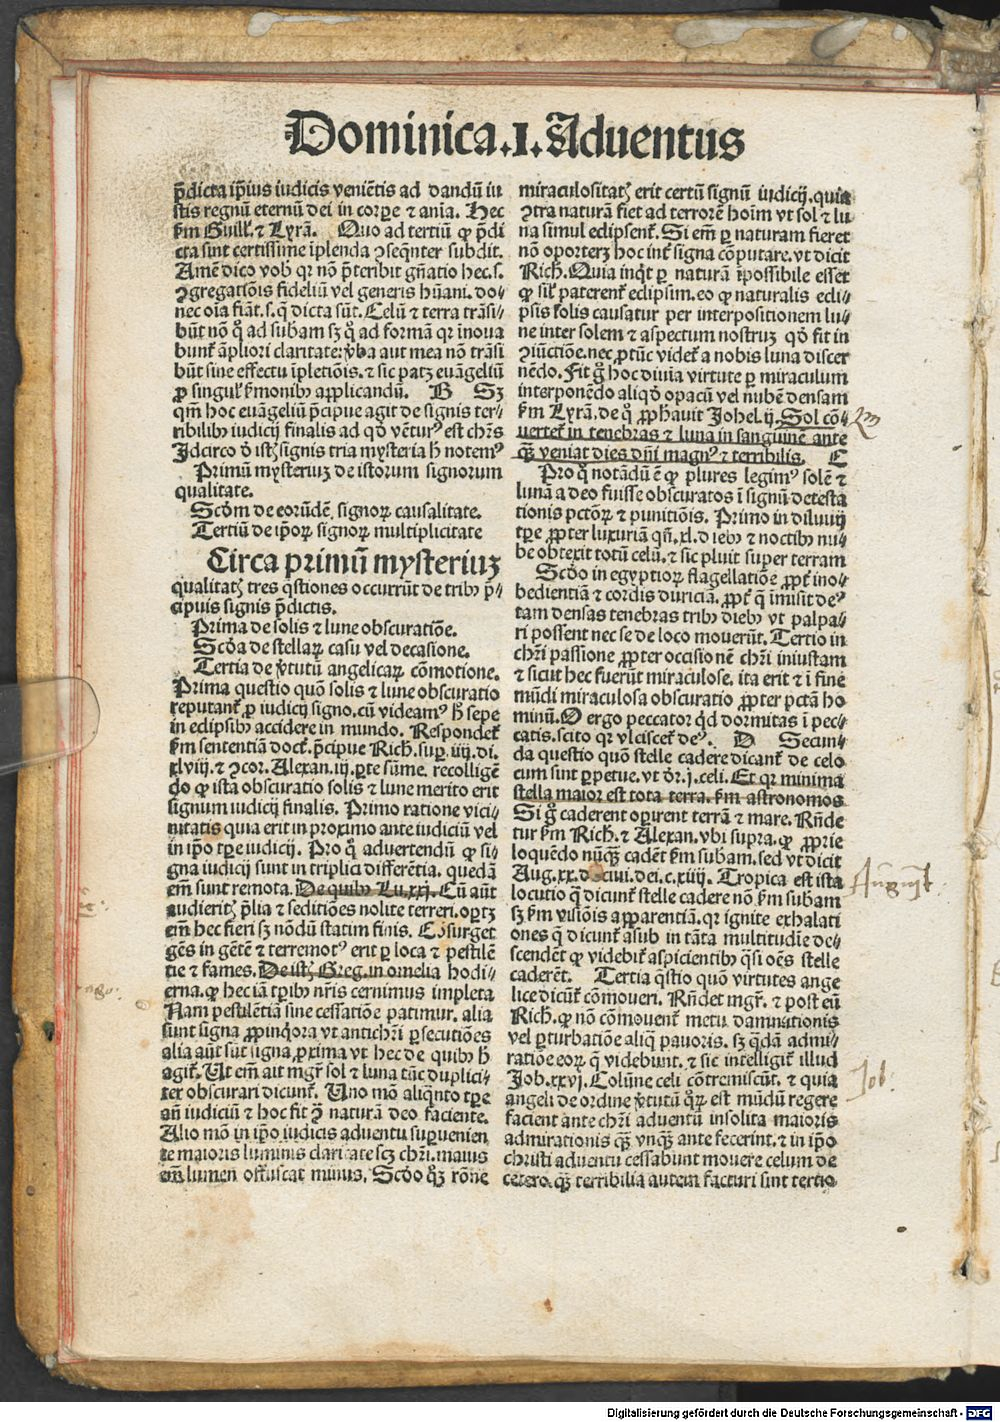 Dominica .I. Aduentus
p̄dicta ip̄ius iudicis veniētis ad dandū iu
stis regnū eternū dei in corꝑe ⁊ anīa. Hec
ẜm Guill'. ⁊ Lyrā. Quo ad tertiū ꝙ p̄di
cta sint certissime īplenda ꝯseq̄nter subdit.
Amē dico vob' qꝛ nō p̄teribit gn̄atio hec. s.
ꝯgregatiōis fideliū vel generis hūani. do-
nec oīa fiāt. s. q̄ dicta sūt. Celū ⁊ terra trāsi-
būt nō q̄ ad subam sꝫ q̄ ad formā qꝛ īnoua
bunť āpliori claritate: v̄ba aut mea nō trāsi
būt sine effectu īpletiōis. ⁊ sic patꝫ euāgeliū
ꝓ singul' ẜmonibꝰ applicandū. B Sꝫ
qm̄ hoc euāgeliū p̄cipue agit de signis ter-
ribilibꝰ iudicij finalis ad qd̄ ventur⁹ est chr̄s
Idcirco d̄ istꝭ signis tria mysteria h̄ notem⁹
Primū mysteriuꝫ de istorum signorum
qualitate.
Scd̄m de eorūdē signoꝝ causalitate.
Tertiū de ip̄oꝝ signoꝝ multiplicitate
Circa primū mysteriuꝫ
qualitatꝭ tres q̄stiones occurrūt de tribꝰ p̄-
cipuis signis p̄dictis.
Prima de solis ⁊ lune obscuratiōe.
Scd̄a de stellaꝝ casu vel decasione.
Tertia de v̄tutū angelicaꝝ cōmotione.
Prima questio quō solis ⁊ lune obscuratio
reputanť ꝓ iudicij signo. cū videam⁹ h̄ sepe
in eclipsibꝰ accidere in mundo. Respondeť
ẜm sententiā doct'. p̄cipue Rich. suꝑ. iiij. di.
xlviij. ⁊ ꝯcor. Alexan. iij. ꝑte sūme. recolligē
do ꝙ ista obscuratio solis ⁊ lune merito erit
signum iudicij finalis. Primo ratione vici-
nitatis quia erit in proximo ante iudiciū vel
in ip̄o tꝑe iudicij. Pro q̄ aduertendū ꝙ si-
gna iudicij sunt in triplici differētia. quedā
em̄ sunt remota. De quibꝰ Lu. xxj. Cū aūt
audieritꝭ p̄lia ⁊ seditiōes nolite terreri. opꝛtꝫ
em̄ hec fieri sꝫ nōdū statim finis. Cōsurget
gēs in gētē ⁊ terremot⁹ erit ꝑ loca ⁊ pestilē
tie ⁊ fames. De istꝭ Greg. in omelia hodi-
erna. ꝙ hec iā tꝑibꝰ nr̄is cernimus impleta
Nam pestilētiā sine cessatiōe patimur. alia
sunt signa ꝓpinq̄ora vt antichr̄i ꝑsecutiōes
alia aūt sūt signa ꝓxima vt hec de quibꝰ h̄
agiť. Ut em̄ ait mgr̄ sol ⁊ luna tūc duplici-
ter obscurari dicunť. Uno mō aliq̄nto tꝑe
an̄ iudiciū ⁊ hoc fit ꝯ̄ naturā deo faciente.
Alio mō in ip̄o iudicis aduentu suꝑuenien
te maioris luminis claritate scꝫ chr̄i. maius
em̄ lumen offuscat minus. Scd̄o qꝫ rōne
miraculositatꝭ erit certū signū iudicij. quia
ꝯtra naturā fiet ad terrorē hoīm vt sol ⁊ lu
na simul eclipsenť. Si em̄ ꝑ naturam fieret
nō oporterꝫ hoc inť signa cōputare. vt dicit
Rich. Quia inq̄t ꝑ naturā īpossibile esset
ꝙ sil' paterenť eclipsim. eo ꝙ naturalis ecli-
psis solis causatur per interpositionem lu-
ne inter solem ⁊ aspectum nostruꝫ qd̄ fit in
ꝯiūctiōe. nec ꝓ tūc videť a nobis luna discer
nēdo. Fit g̊ hoc diuīa virtute ꝑ miraculum
interponēdo aliqd̄ opacū vel nubē densam
ẜm Lyrā. de q̄ ꝓphauit Johel. ij. Sol cō-
uerteť in tenebras ⁊ luna in sanguinē ante
qꝫ̄ veniat dies dn̄i magn⁹ ⁊ terribilis. C
Pro q̄ notādū ē ꝙ plures legim⁹ solē ⁊
lunā a deo fuisse obscuratos ī signū detesta
tionis pctōꝝ ⁊ punitiōis. Primo in diluuij
tꝑe ꝓpter luxuriā qn̄. xl. diebꝰ ⁊ noctibꝰ nu-
be obtexit totū celū. ⁊ sic pluit super terram
Scd̄o in egyptioꝝ flagellatiōe ꝓpť ino-
bedientiā ⁊ cordis duriciā. ꝓpť q̄ īmisit de⁹
tam densas tenebras tribꝰ diebꝰ vt palpa-
ri possent nec se de loco mouerūt. Tertio in
chr̄i passiōne ꝓpter occisionē chr̄i iniustam
⁊ sicut hec fuerūt miraculose. ita erit ⁊ ī fine
mūdi miraculosa obscuratio ꝓpter pctā ho
minū. O ergo peccator qd̄ dormitas ī pec-
catis. scito qꝛ vlcisceť de⁹. D Secun-
da questio quō stelle cadere dicanť de celo
cum sint ꝑpetue. vt dr̄. j. celi. Et qꝛ minima
stella maior est tota terra. ẜm astronomos
Si g̊ caderent oꝑirent terrā ⁊ mare. Rn̄de
tur ẜm Rich. ⁊ Alexan. vbi supra. ꝙ ꝓprie
loquēdo nūqꝫ̄ cadēt ẜm subam. sed vt dicit
Aug. xx. d ciui. dei. c. xiiij. Tropica est ista
locutio q̄ dicunť stelle cadere nō ẜm subam
sꝫ ẜm visiōis apparentiā. qꝛ ignite exhalati
ones q̄ dicunť asub in tāta multitudīe de-
scendēt ꝙ videbiť aspicientibꝰ q̄si oēs stelle
caderēt. Tertia q̄stio quō virtutes ange
lice dicūť cōmoueri. Rn̄det mgr̄. ⁊ post eū
Rich. ꝙ nō cōmouenť metu damnationis
vel ꝑturbatiōe aliq̄ pauoris. sꝫ q̄dā admi-
ratiōe eoꝝ q̄ videbunt. ⁊ sic intelligiť illud
Job. xxvj. Colūne celi cōtremiscūt. ⁊ quia
angeli de ordine v̄tutū q̄ꝝ est mūdū regere
facient ante chr̄i aduentū insolita maioris
admirationis qꝫ̄ vnqꝫ̄ ante fecerint. ⁊ in ip̄o
christi aduentu cessabunt mouere celum de
cetero. qꝫ̄ terribilia autem facturi sint tertio
Augusti
Job:
Digitalisierung gefördert durch die Deutsche Forschungsgemeinschaft - DFG